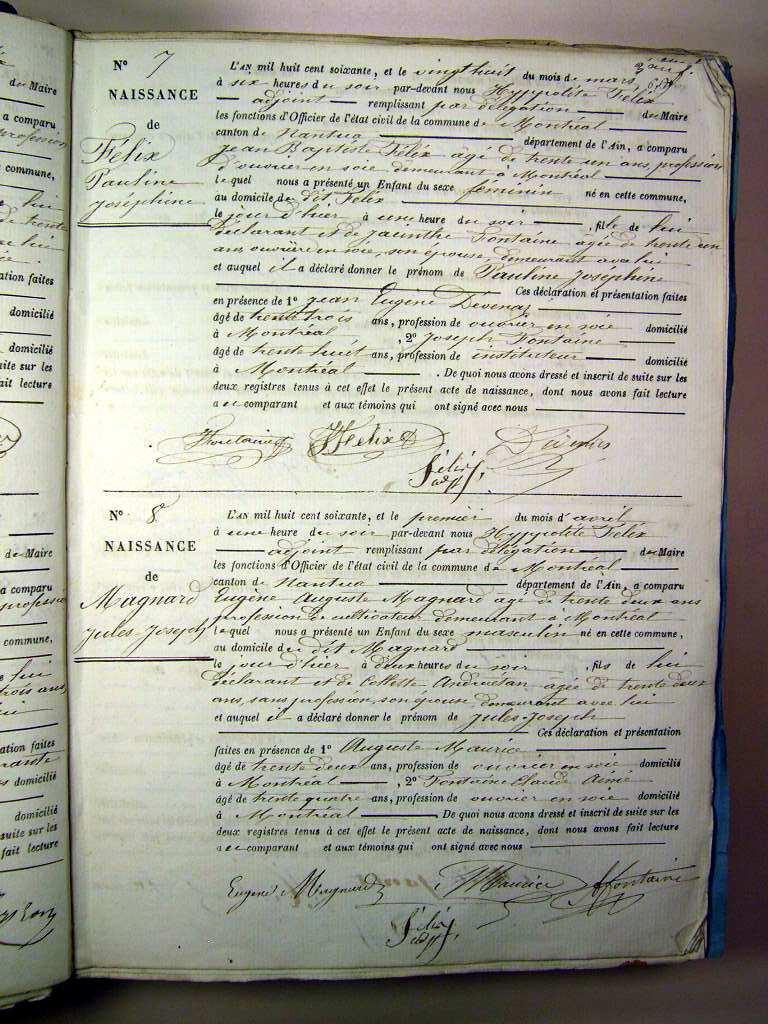 du Maire
a comparu
profession
commune,
ation faites
domicilié
domicilié
uite sur les
ait lecture
N° 7
NAISSANCE
de
Félix
Pauline
Joséphine
L'AN mil huit cent soixante, et le vingt huit du mois de mars
à six heures du soir par-devant nous Hyppolite Félix
adjoint remplissant par délégation du Maire
les fonctions d'Officier de l'état civil de la commune de Montréal
canton de Nantua département de l'Ain, a comparu
Jean Baptiste Félix âgé de trente un ans, profession
d'ouvrier en soie demeurant à Montréal
lequel nous a présenté un Enfant du sexe féminin né en cette commune,
au domicile du dit Félix
le jour d'hier à une heure du soir, fille de lui
déclarant et de Jacinthe Fontaine âgée de trente un
ans ouvrière en soie, son épouse, demeurant avec lui
et auquel il a déclaré donner le prénom de Pauline Joséphine
Ces déclaration et présentation faites
en présence de 1° Jean Eugène
âgé de trente trois ans, profession de ouvrier en soie domicilié
à Montréal, 2° Joseph Fontaine
âgé de trente huit ans, profession de instituteur domicilié
à Montréal. De quoi nous avons dressé et inscrit de suite sur les
deux registres tenus à cet effet le présent acte de naissance, dont nous avons fait lecture
au comparant et aux témoins qui ont signé avec nous
Fontaine J Félix
Félix adjt
N° 8
NAISSANCE
de
Magnard
Jules Joseph
L'AN mil huit cent soixante, et le premier du mois d'avril
à une heure du soir par-devant nous Hyppolite Félix
adjoint remplissant par délégation du Maire
les fonctions d'Officier de l'état civil de la commune de Montréal
canton de Nantua département de l'Ain, a comparu
Eugène Auguste Magnard âgé de trente deux ans
profession de cultivateur demeurant à Montréal
lequel nous a présenté un Enfant du sexe masculin né en cette commune,
au domicile du dit Magnard
le jour d'hier à deux heures du soir, fils de lui
déclarant et de Andrésan âgée de trente deux
ans, sans profession, son épouse, demeurant avec lui
et auquel il a déclaré donner le prénom de Jules-Joseph
Ces déclaration et présentation
faites en présence de 1° Auguste Maurice
âgé de trente deux ans, profession de ouvrier en soie domicilié
à Montréal, 2° Fontaine Claude Aimé
âgé de trente quatre ans, profession de ouvrier en soie domicilié
à Montréal De quoi nous avons dressé et inscrit de suite sur les
deux registres tenus à cet effet le présent acte de naissance, dont nous avons fait lecture
au comparant et aux témoins qui ont signé avec nous
Eugène Magnard Maurice Fontaine
Félix adjt